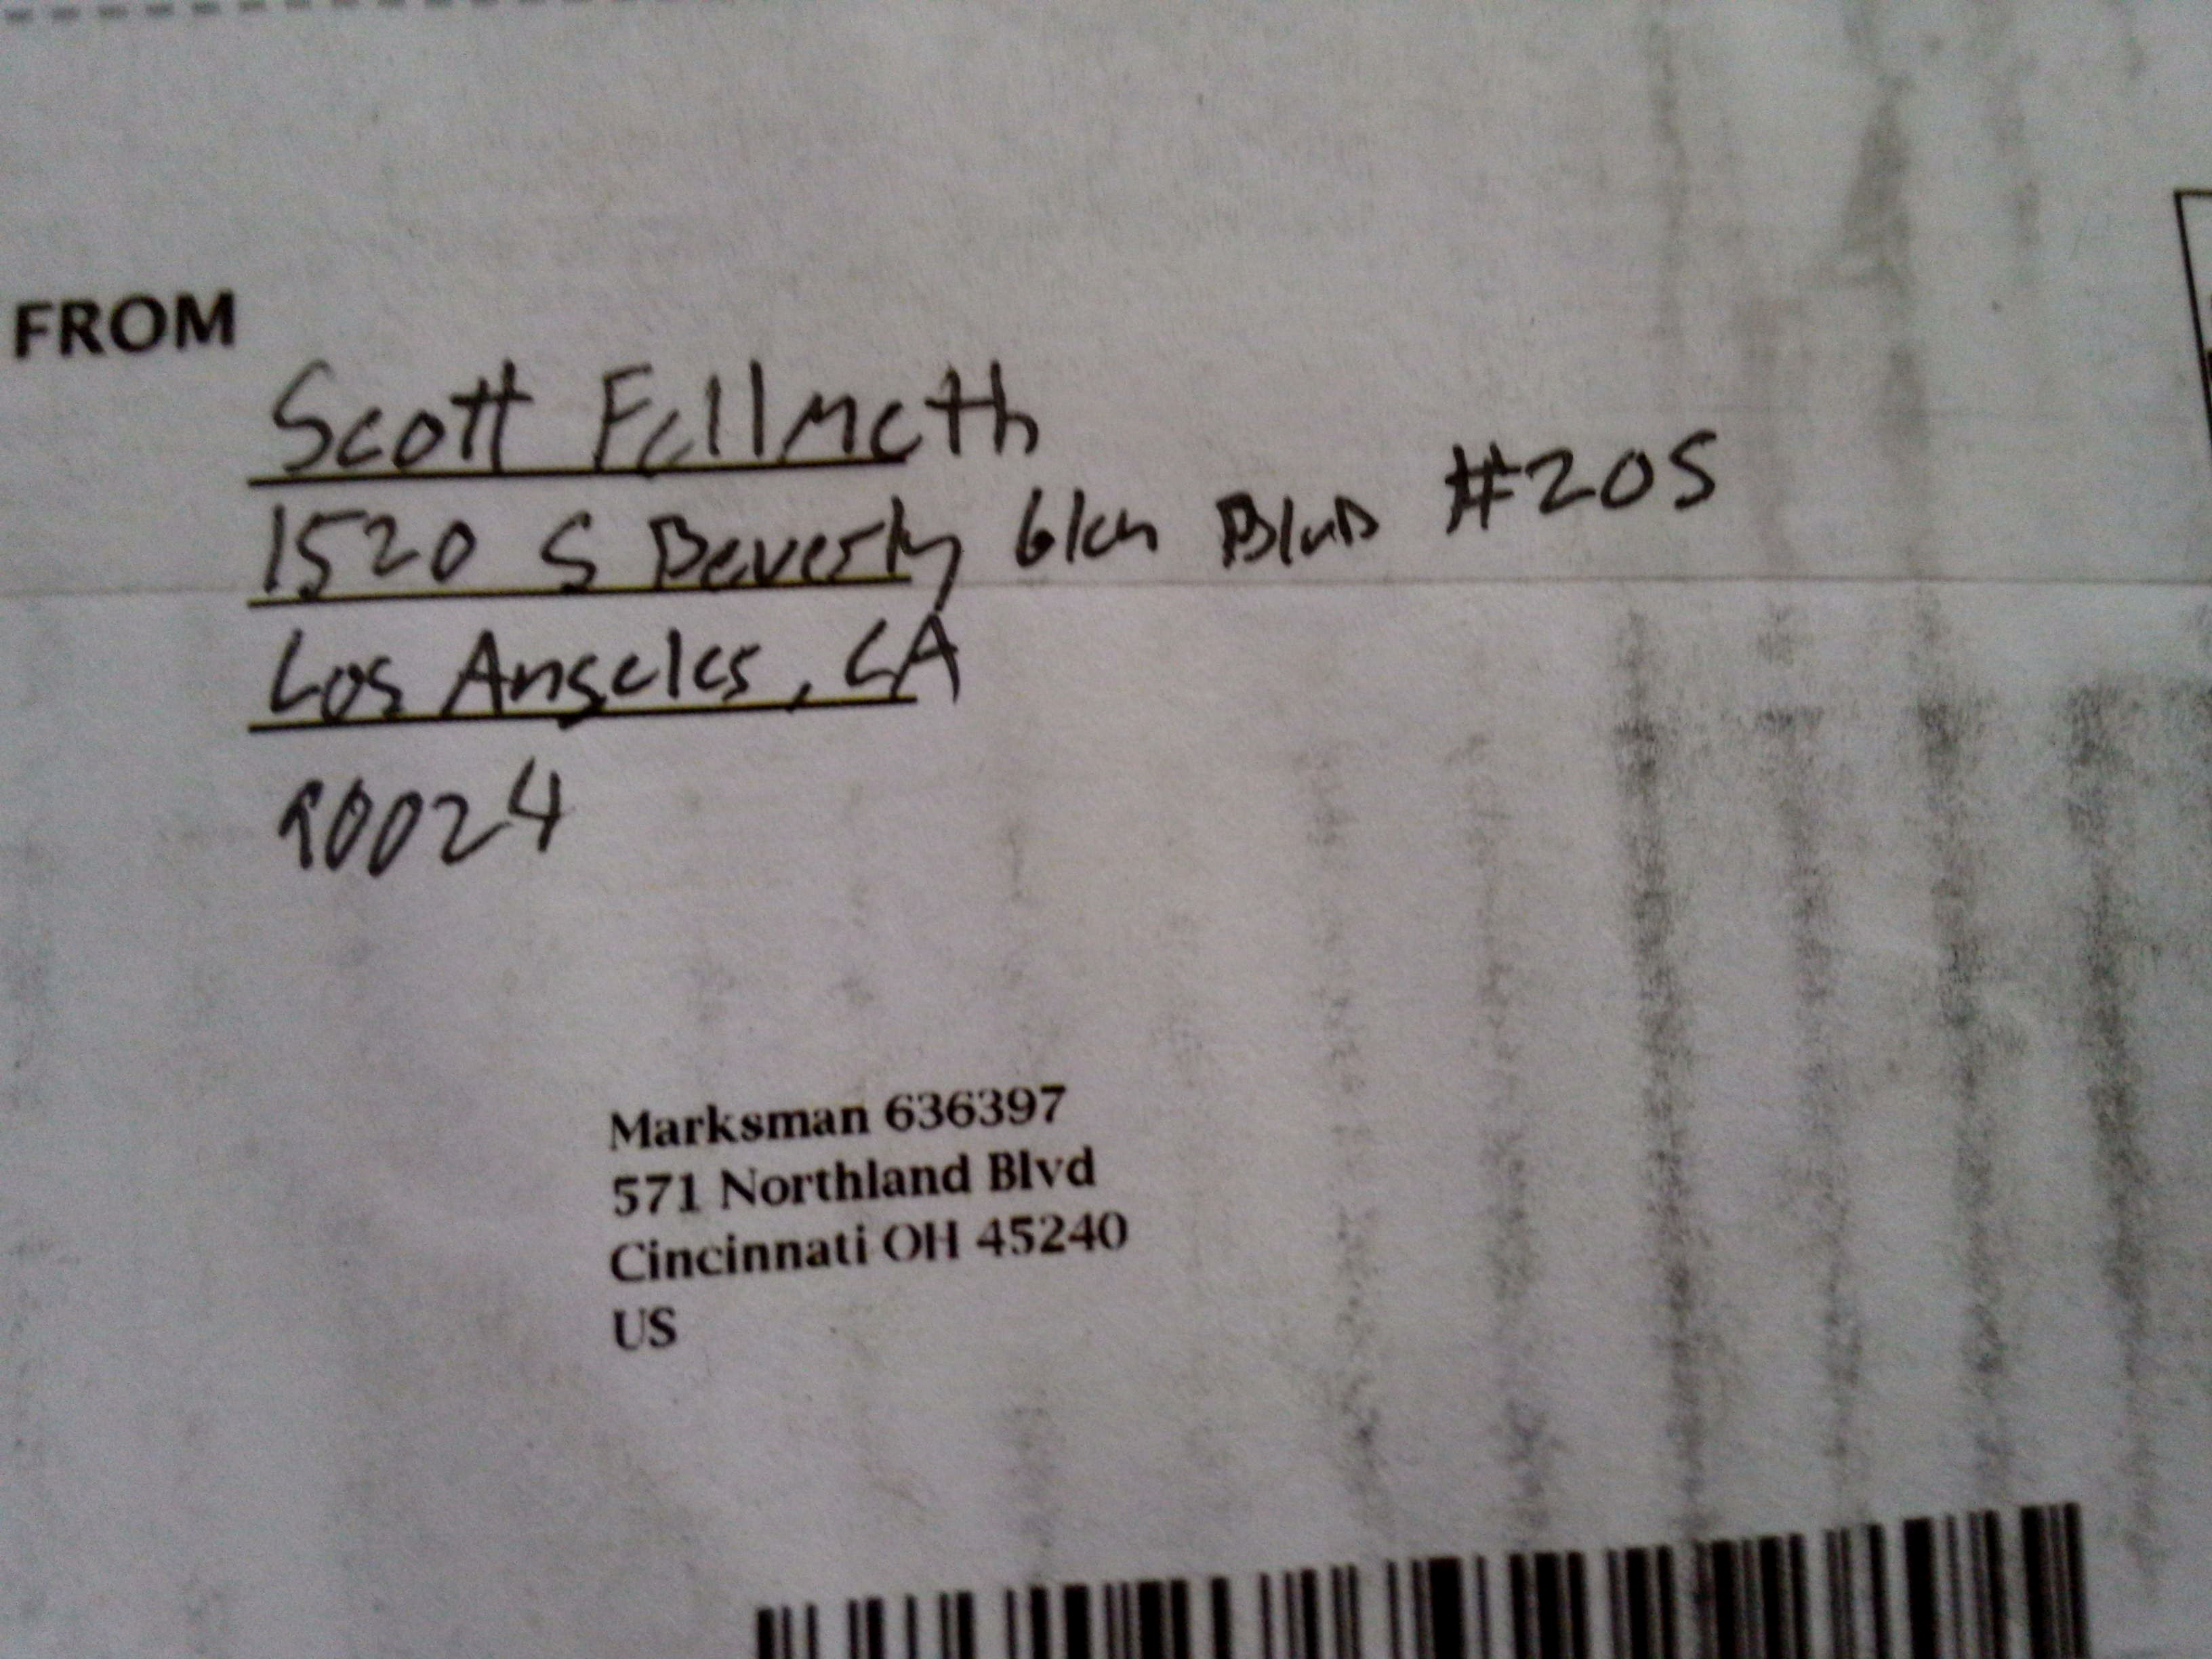 FROM
Scott Fellmeth
1520 S Beverly Glen Blvd #205
Los Angeles, CA
90024
Marksman 636397
571 Northland Blvd
Cincinnati OH 45240
US